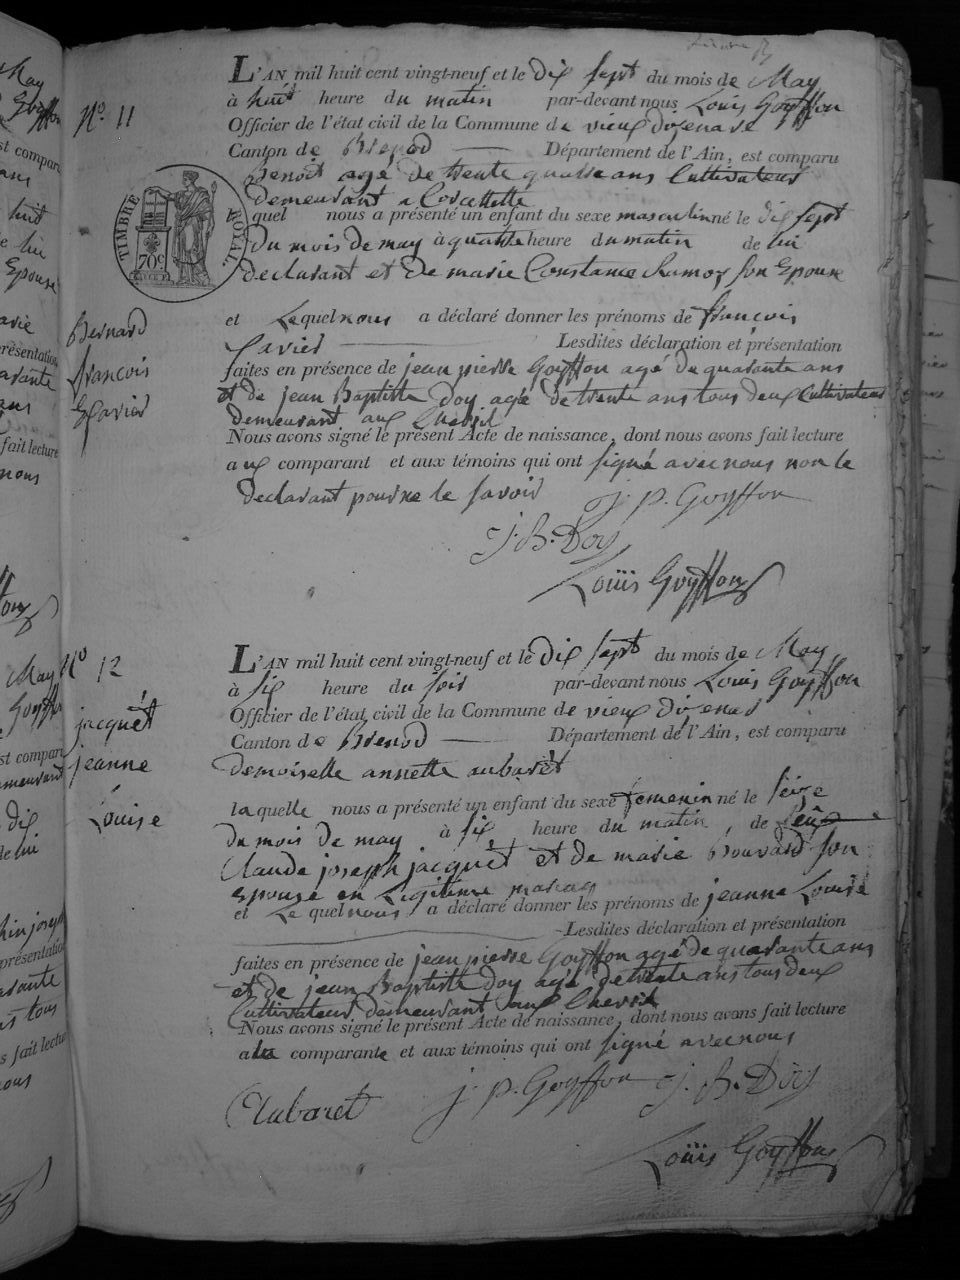 L'AN mil huit cent vingt-neuf et le dix sept du mois de May
à huit heure du matin par-devant nous Louis Goyffon
No. 11
Officier de l'état civil de la Commune de vieux d'izenave
Canton de Brenod Département de l'Ain, est comparu
Benoit agé de trente quatre ans Cultivateur
demeurant a Corcelette
TIMBRE ROYAL.
70c
quel nous a présenté un enfant du sexe masculin né le dix sept
du mois de may à quatre heure du matin de lui
declarant et de marie Constance Ramoz son Epouse
Bernard
francois
Xavier
et Lequel nous a déclaré donner les prénoms de francois
Xavier Lesdites déclaration et présentation
faites en présence de jean pierre Goyffon agé de quarante ans
et de jean Baptiste Doy agé de trente ans tous deux Cultivateur
demeurant aux Chevril
Nous avons signé le présent Acte de naissance, dont nous avons fait lecture
aux comparant et aux témoins qui ont signé avec nous non le
declarant pour ne le savoir
J. P. Goyffon
J. B. Doy
Louïs Goyffon
No 12
L'AN mil huit cent vingt-neuf et le dix sept du mois de May
à six heure du soir par-devant nous Louis Goyffon
Officier de l'état civil de la Commune de vieux d'izenav
Canton de Brenod Département de l'Ain, est comparu
jacquèt
jeanne
Louise
demoiselle annette aubarèt
laquelle nous a présenté un enfant du sexe femenin né le seize
du mois de may à six heure du matin, de
Claude joseph jacquèt et de marie Bouvard son
epouse en Legitime mariag
et Le quel nous a déclaré donner les prénoms de jeanne Louise
Lesdites déclaration et présentation
faites en présence de jean pierre Goyffon agé de quarante ans
et de jean Baptiste Doy agé de trente ans tous deux
Cultivateur demeurant aux Chevril
Nous avons signé le présent Acte de naissance, dont nous avons fait lecture
a la comparante et aux témoins qui ont signé avec nous
Aubaret
J. P. Goyffon
J. B. Doy
Louïs Goyffon